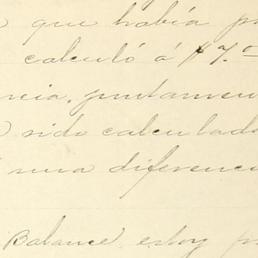 que había
calculó á $7.º
juntamen
sido calculado
una diferenc
Balance estoy